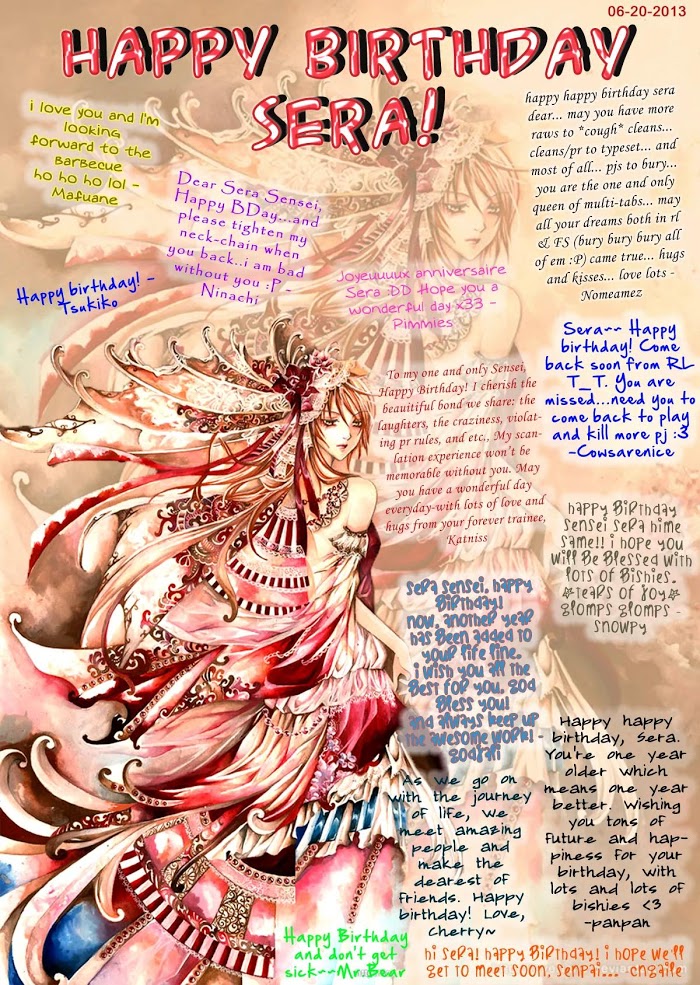 06-20-2013
HAPPY BIRTHDAY
SERA!
i love you and I'm
looking
forward to the
Barbecue
ho ho ho lol -
Mafuane
Dear Sera Sensei,
Happy BDay...and
please tighten my
neck-chain when
you back..i am bad
without you :P -
Ninachi
happy happy birthday sera
dear... may you have more
raws to *cough* cleans...
cleans/pr to typeset... and
most of all... pjs to bury...
you are the one and only
queen of multi-tabs... may
all your dreams both in rl
& FS (bury bury bury all
of em :P) came true... hugs
and kisses... love lots -
Nomeamez
Happy birthday! -
Tsukiko
Joyeuuuux anniversaire
Sera :DD Hope you a
wonderful day x33 -
Pimmies
Sera~~ Happy
birthday! Come
back soon from RL
T_T. You are
missed...need you to
come back to play
and kill more pj :3
-Cowsarenice
To my one and only Sensei,
Happy Birthday! I cherish the
beautiful bond we share: the
laughters, the craziness, violat-
ing pr rules, and etc., My scan-
lation experience won't be
memorable without you. May
you have a wonderful day
everyday-with lots of love and
hugs from your forever trainee,
Katniss
happy birthday
sensei sera hime
same!! i hope you
will be blessed with
lots of bishies.
*tears of joy*
glomps glomps -
snowpy
sera sensei, happy
birthday!
now, another year
has been added to
your life line.
i wish you all the
best for you. god
bless you!
and always keep up
the awesome work! -
godzali
As we go on
with the journey
of life, we
meet amazing
people and
make the
dearest of
friends. Happy
birthday! Love,
Cherry~
Happy happy
birthday, Sera.
You're one year
older which
means one year
better. Wishing
you tons of
future and hap-
piness for your
birthday, with
lots and lots of
bishies <3
-panpan
Happy Birthday
and don't get
sick~~Mr.Bear
hi sera! happy birthday! i hope we'll
get to meet soon, senpai... -